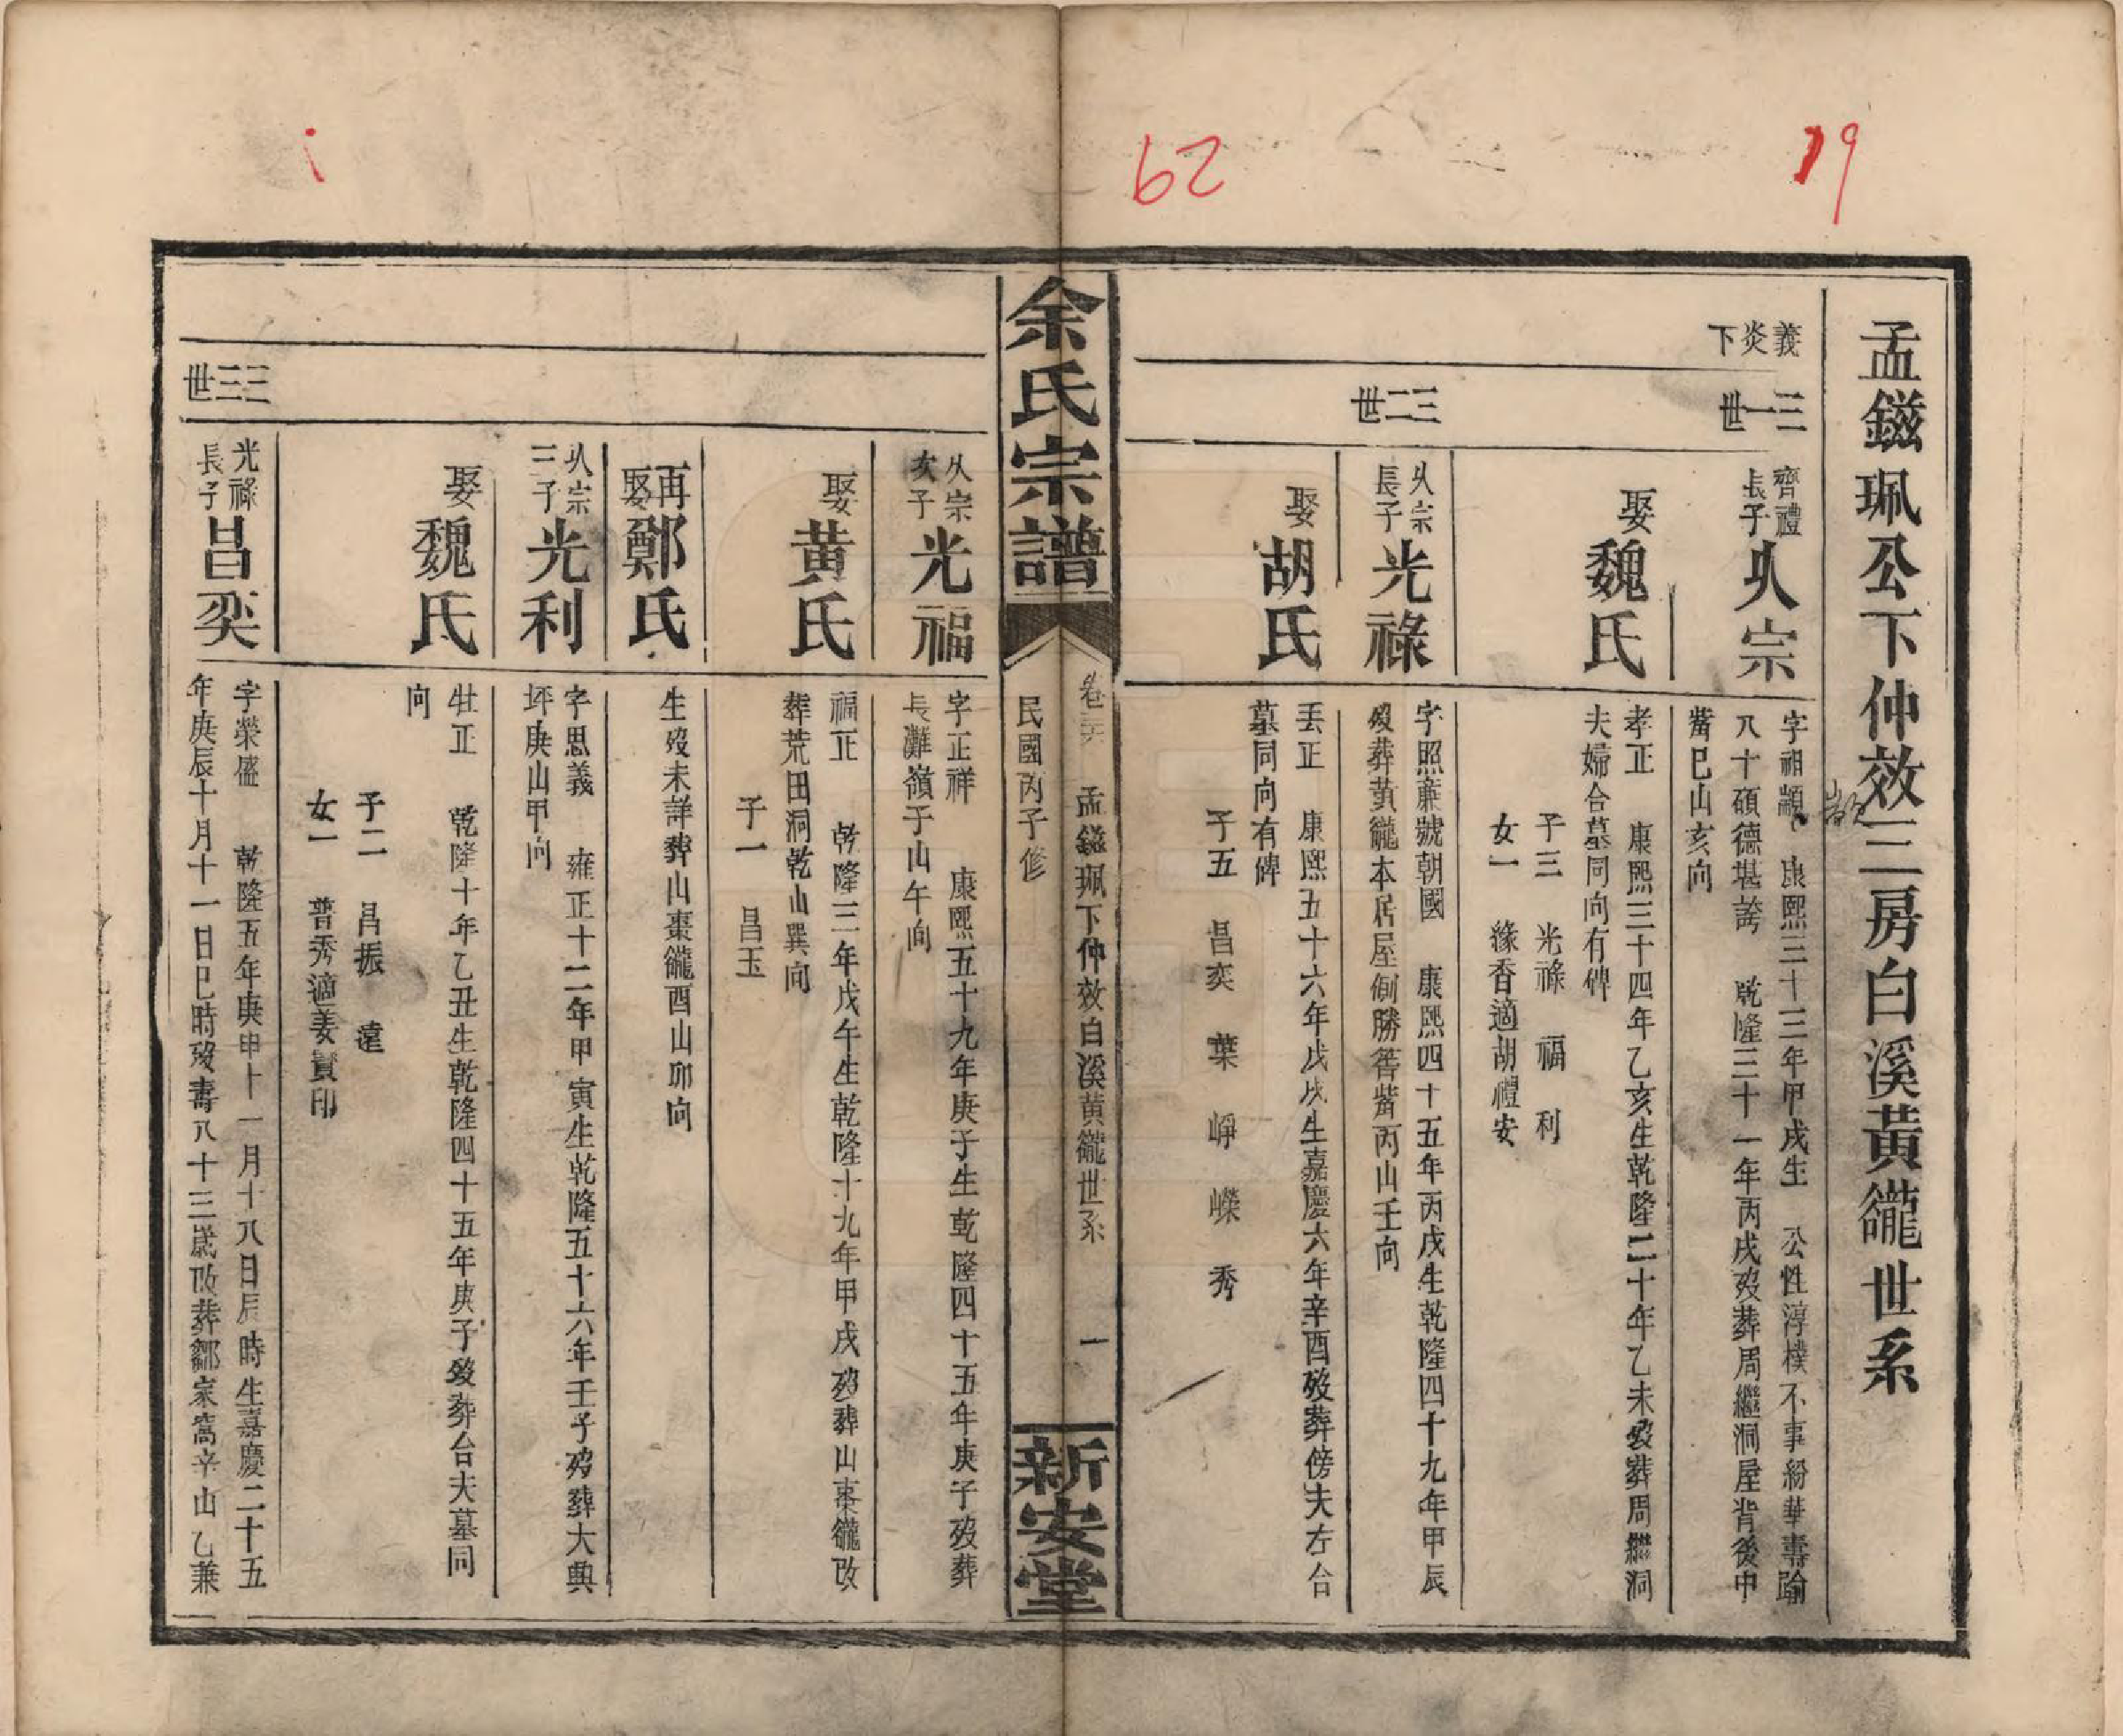 孟鎡珮公下仲效三房白溪黃巃世系
義炎下
三一世
齊禮長子
乆宗
字祖顓 康熙三十三年甲戌生 公性淳樸不事紛華壽踰
八十碩德堪誇 乾隆三十一年丙戌歿葬周繼洞屋背後中
嘴巳山亥向
娶魏氏
孝正 康熙三十四年乙亥生乾隆二十年乙未歿葬周繼洞
夫婦合墓同向有碑
子三 光祿 福 利
女一 緣香適胡禮安
三二世
乆宗長子
光祿
字照蕭號朝國 康熙四十五年丙戌生乾隆四十九年甲辰
歿葬黃巃本居屋側勝嘴丙山壬向
娶胡氏
丟正 康熙五十六年戊戌生嘉慶六年辛酉歿葬傍夫左合
墓同向有碑
子五 昌奕 葉 崢 嶸 秀
余氏宗譜
孟鎡珮下仲效白溪黃巃世系 一
民國丙子修
新安堂
乆宗次子
光福
字正祥 康熙五十九年庚子生乾隆四十五年庚子歿葬
長灘嶺子山午向
娶黃氏
福正 乾隆三年戊午生乾隆十九年甲戌歿葬山棗巃改
葬荒田洞乾山巽向
子一 昌玉
再娶鄭氏
生歿未詳葬山棗巃酉山卯向
乆宗三子
光利
字思義 雍正十二年甲寅生乾隆五十六年壬子歿葬大典
坪庚山甲向
娶魏氏
牡正 乾隆十年乙丑生乾隆四十五年庚子歿葬合夫墓同
向
子二 昌振 遠
女一 普秀適姜賛印
三三世
光祿長子
昌奕
字榮盛 乾隆五年庚申十一月十八日辰時生嘉慶二十五
年庚辰十月十一日巳時歿壽八十三歲改葬鄒家窩辛山乙兼
62
19